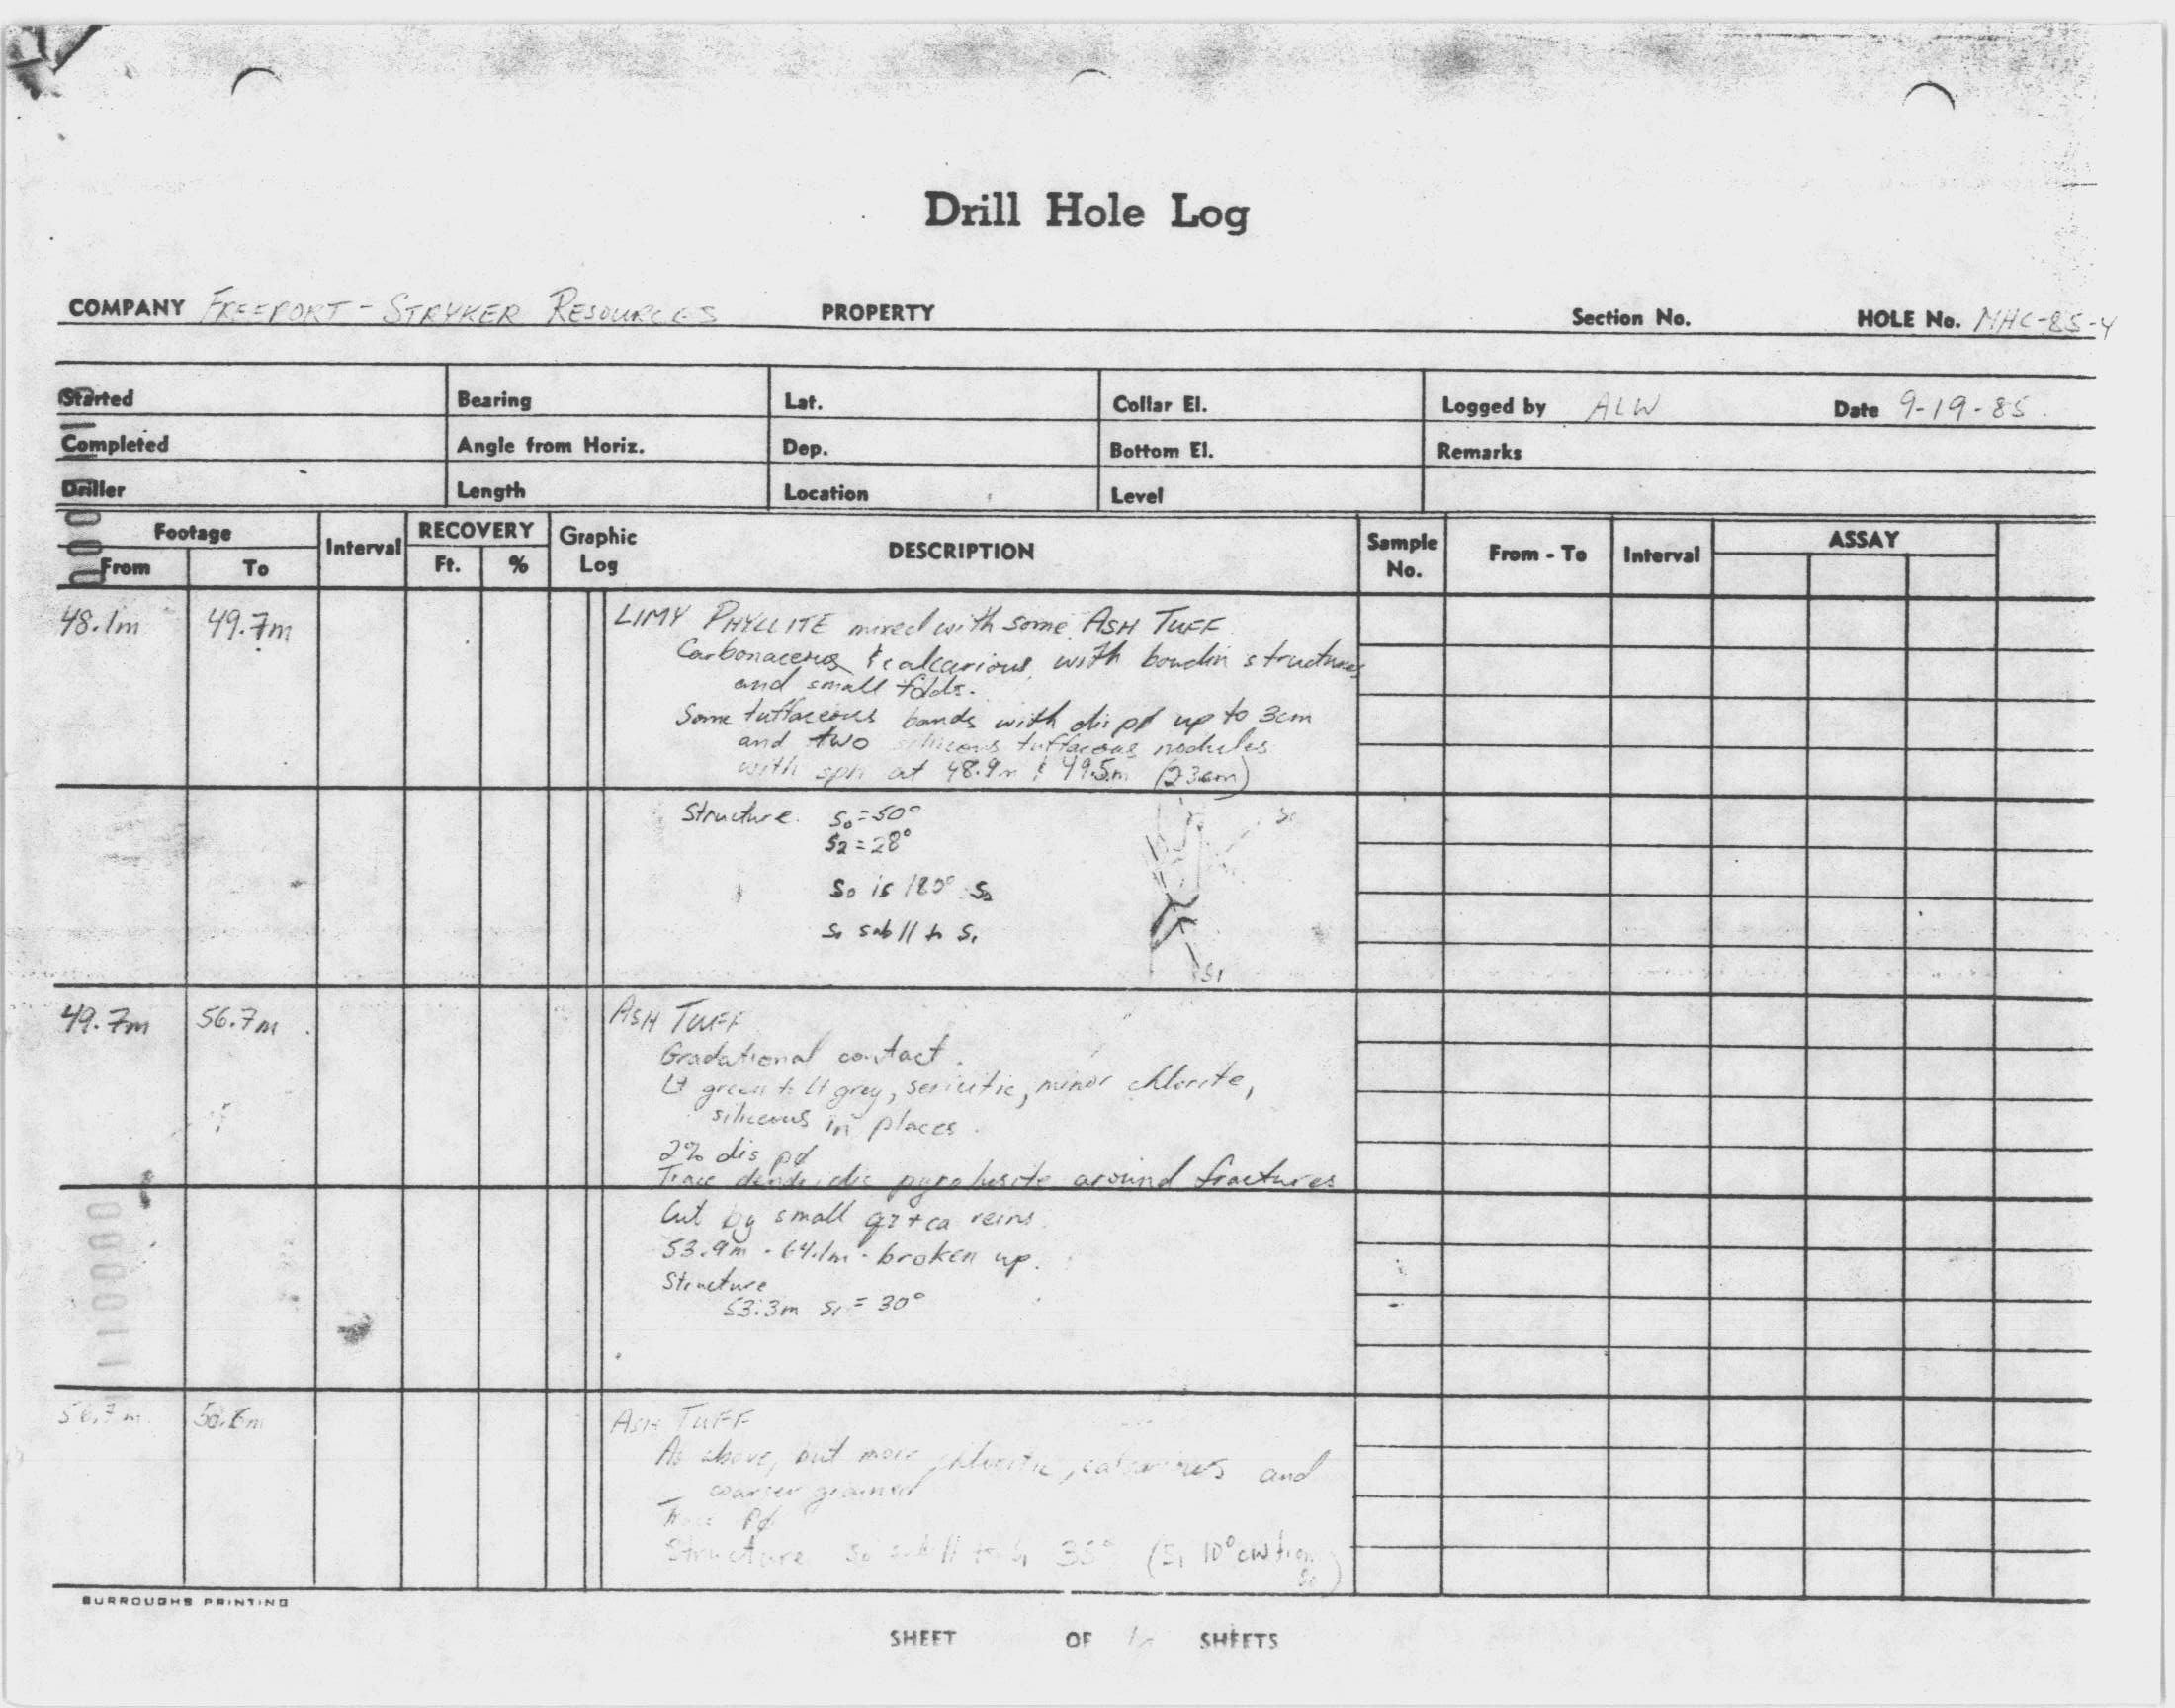 Drill Hole Log
COMPANY FREEPORT - STRYKER RESOURCES PROPERTY Section No. HOLE No. MHC-85-4
Started Bearing Lat. Collar El. Logged by ALW Date 9-19-85.
Completed Angle from Horiz. Dep. Bottom El. Remarks
Driller Length Location Level
Footage Interval RECOVERY Graphic Log DESCRIPTION Sample No. From - To Interval ASSAY
From To Ft. %
48.1m 49.7m LIMY PHYLLITE mixed with some ASH TUFF
Carbonaceous & calcarious, with boudin structures
and small folds.
Some tuffaceous bands with dis pø up to 3cm
and two siliceous tuffaceous nodules
with sph at 48.9m & 49.5m
Structure. S0 = 50°
S2 = 28°
S0 is 180° S2
sub // to S1
S1
49.7m 56.7m. ASH TUFF
Gradational contact.
Lt green to Lt grey, sericitic, minor chlorite,
siliceous in places.
2% dis pø
Trace pyrolusite around fractures
Cut by small qz + ca veins.
53.9m - broken up.
Structure
53.3m S1 = 30°
56.7m ASH TUFF
As above, but more chloritic, calcarious and
coarser grained
Trace pø
Structure S0 sub // to S1 35° (S1 10° cw from
BURROUGHS PRINTING
SHEET OF SHEETS